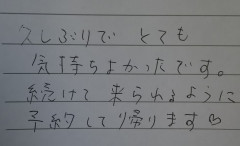 久しぶりで とても
気持ちよかったです。
続けて 来られるように
予約して帰ります♡